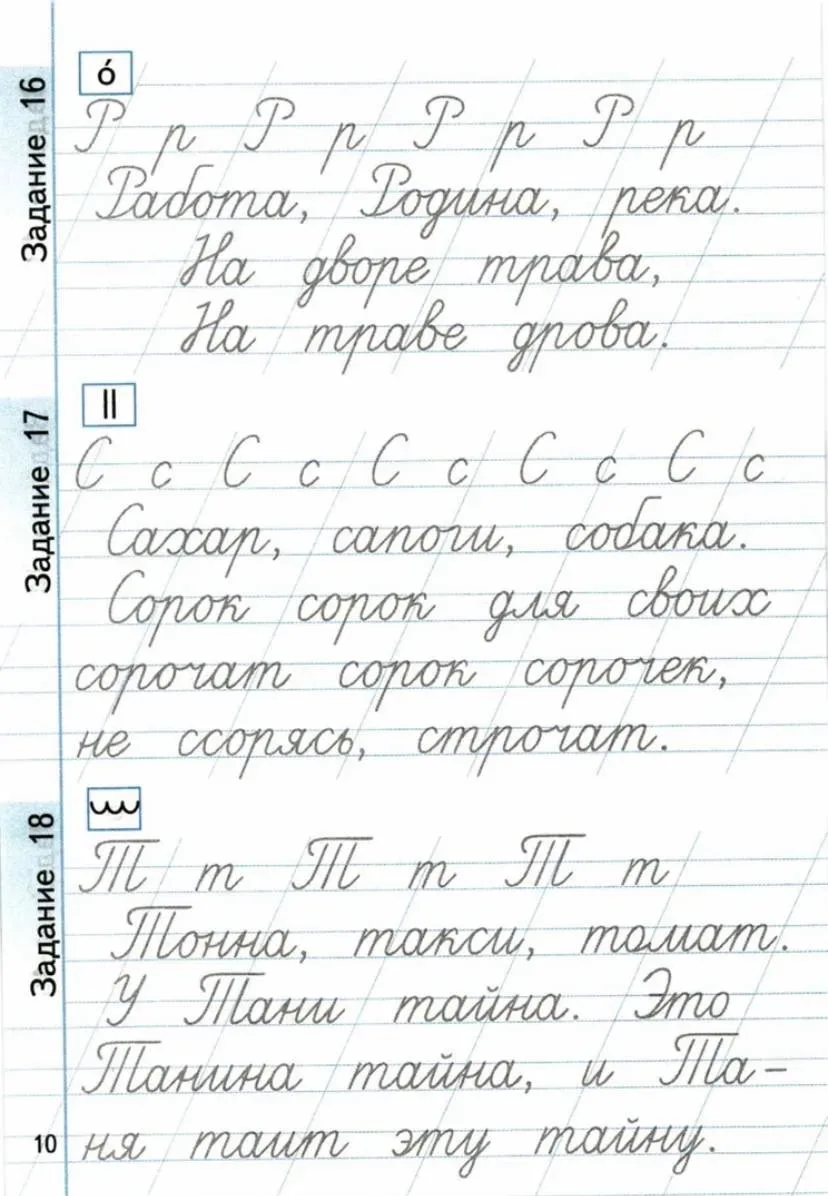 Задание 16
ó
Р р Р р Р р Р р
Работа, Родина, река.
На дворе трава,
На траве дрова.
Задание 17
||
С с С с С с С с С с
Сахар, сапоги, собака.
Сорок сорок для своих
сорочат сорок сорочек,
не ссорясь, строчат.
Задание 18
Т т Т т Т т
Тонна, такси, томат.
У Тани тайна. Это
Танина тайна, и Та-
ня таит эту тайну.
10